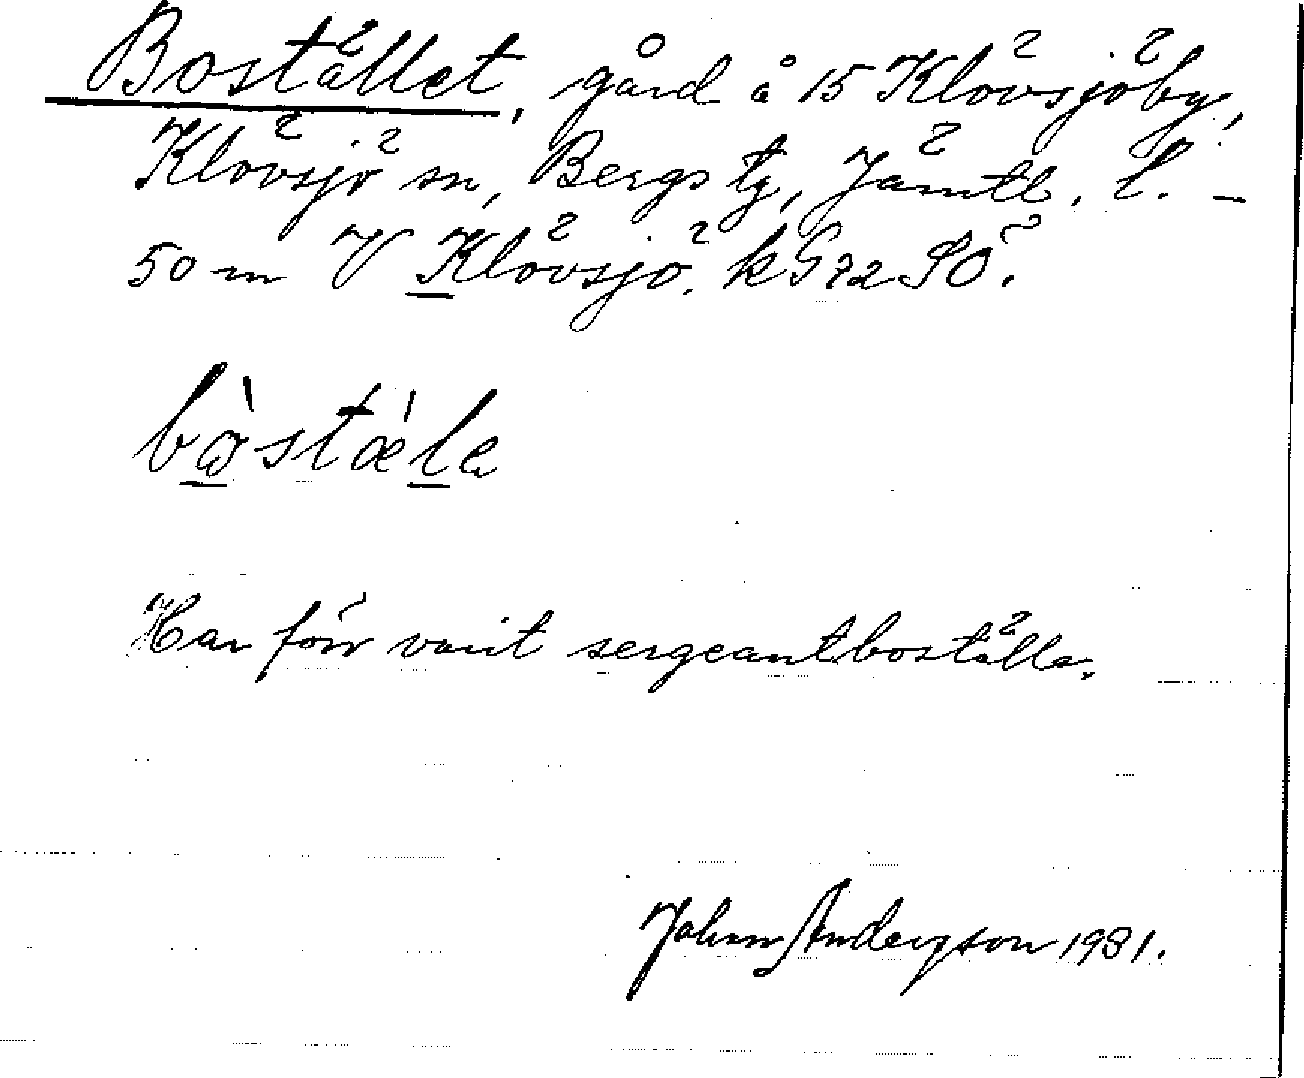 Bostället, gård å 15 Klövsjöby,
Klövsjö sn, Bergs tg, Jämtl. l. –
50 m V Klövsjö. k G72 SÖ.
bòstæ̀la
Har förr varit sergeantboställe.
Johan Andersson 1931.